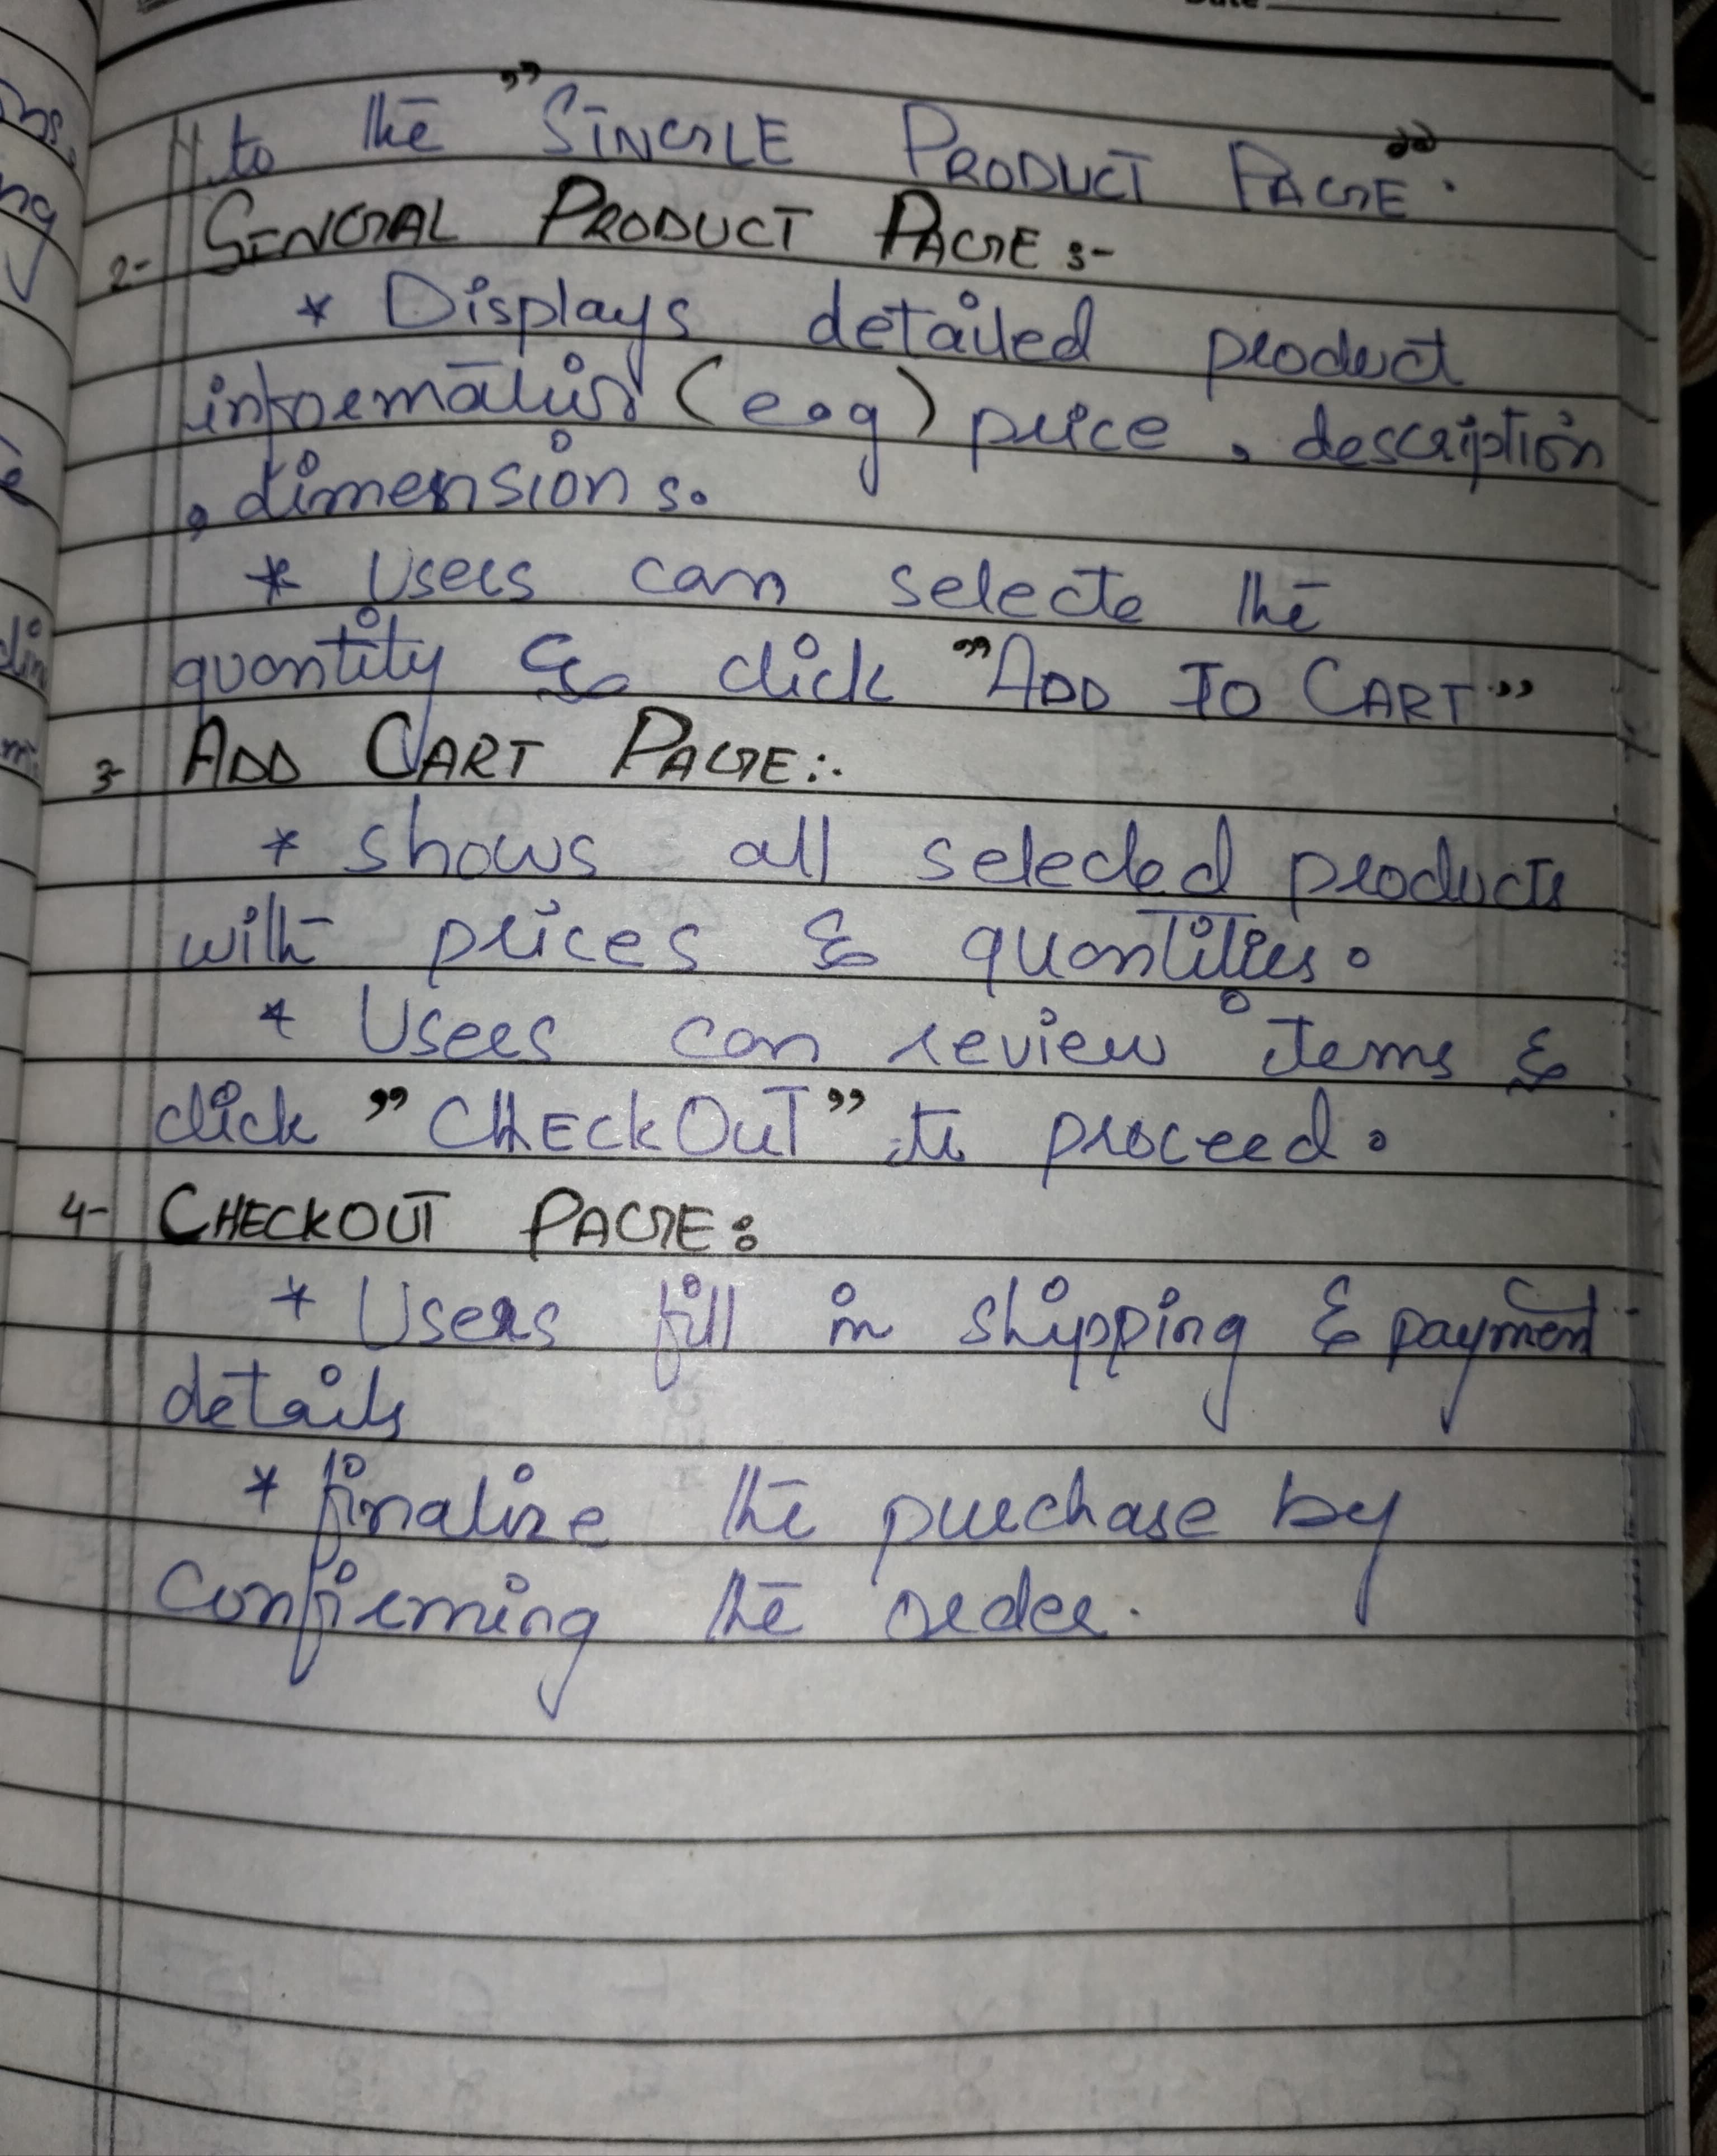 to the "SINGLE PRODUCT PAGE".
2- SINGAL PRODUCT PAGE :-
* Displays detailed product
information (e.g) price , description
, dimensions.
* Users can selecte the
quantity & click "ADD TO CART"
3- ADD CART PAGE :-
* shows all selected products
with prices & quantities.
* Users can review items &
click "CHECKOUT" to proceed.
4- CHECKOUT PAGE :
* Users fill in shipping & payment
details
* finalize the purchase by
Confirming the order.